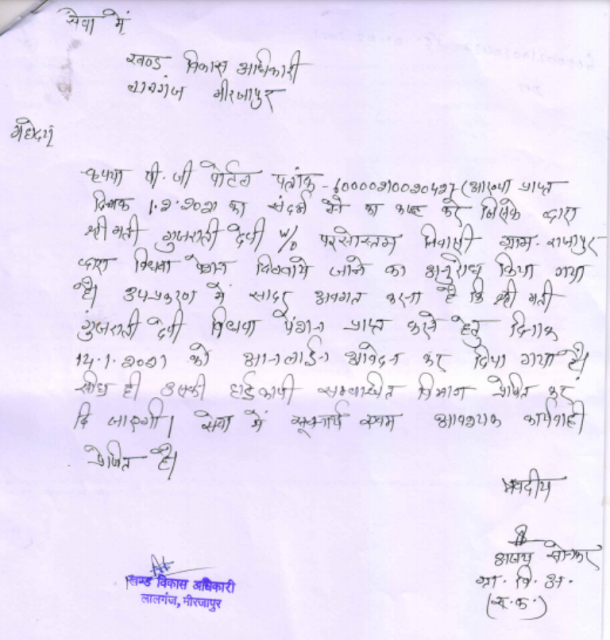 सेवा में
खण्ड विकास अधिकारी
लालगंज मीरजापुर
महोदय
कृपया पी. जी पोर्टल पत्रांक - 60000210020427 (आख्या प्राप्त
दिनांक 1.2.2021 का संदर्भ लेने का कष्ट करें जिसके द्वारा
श्री मती गुजराती देवी W/O परसोत्तम निवासी ग्राम- राजापुर
द्वारा विधवा पेंशन दिलवाये जाने का अनुरोध किया गया
है। उपप्रकरण में सादर अवगत करना है कि श्री मती
गुजराती देवी विधवा पेंशन प्राप्त करने हेतु दिनांक
14.1.2021 को आनलाईन आवेदन कर दिया गया है।
शीघ्र ही उसकी हार्डकापी सम्बन्धित विभाग प्रेषित कर
दि जाएगी। सेवा में सूचनार्थ एवम आवश्यक कार्यवाही
प्रेषित है।
भवदीय
अजय सोनकर
ग्रा. वि. अ.
(स.क.)
खण्ड विकास अधिकारी
लालगंज, मीरजापुर